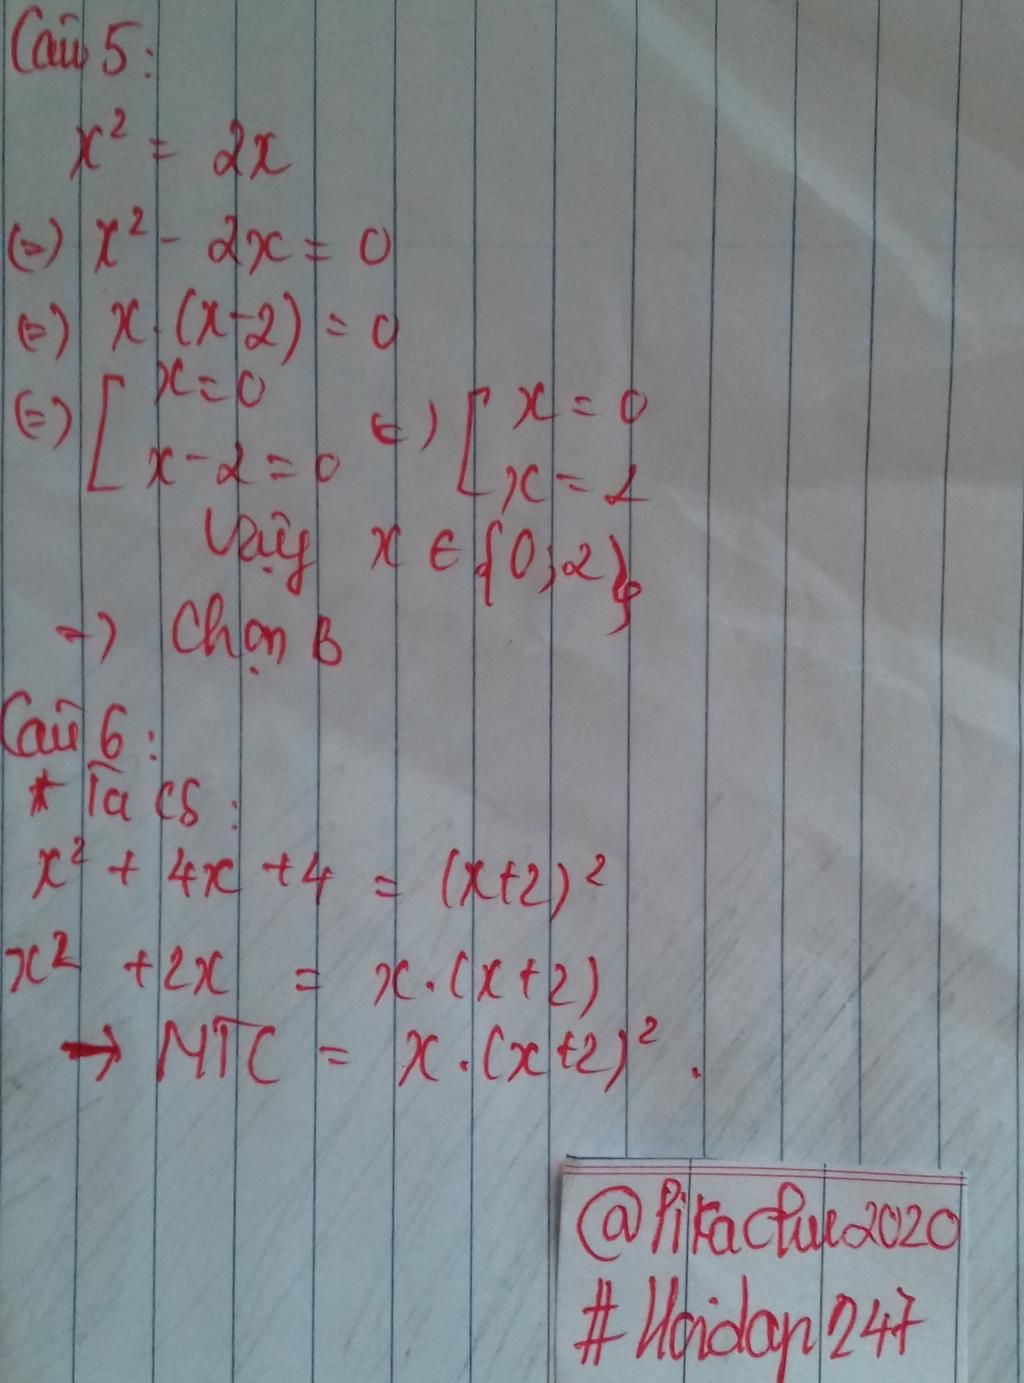 Câu 5:
x² = 2x
(=) x² - 2x = 0
(=) x.(x-2) = 0
(=) [ x = 0 (=) [ x = 0
x - 2 = 0 x = 2
Vậy x ∈ {0; 2}
=) Chọn B
Câu 6:
* Ta có:
x² + 4x + 4 = (x+2)²
x² + 2x = x.(x+2)
→ MTC = x.(x+2)².
@Pikachue2020
#Hoidap247